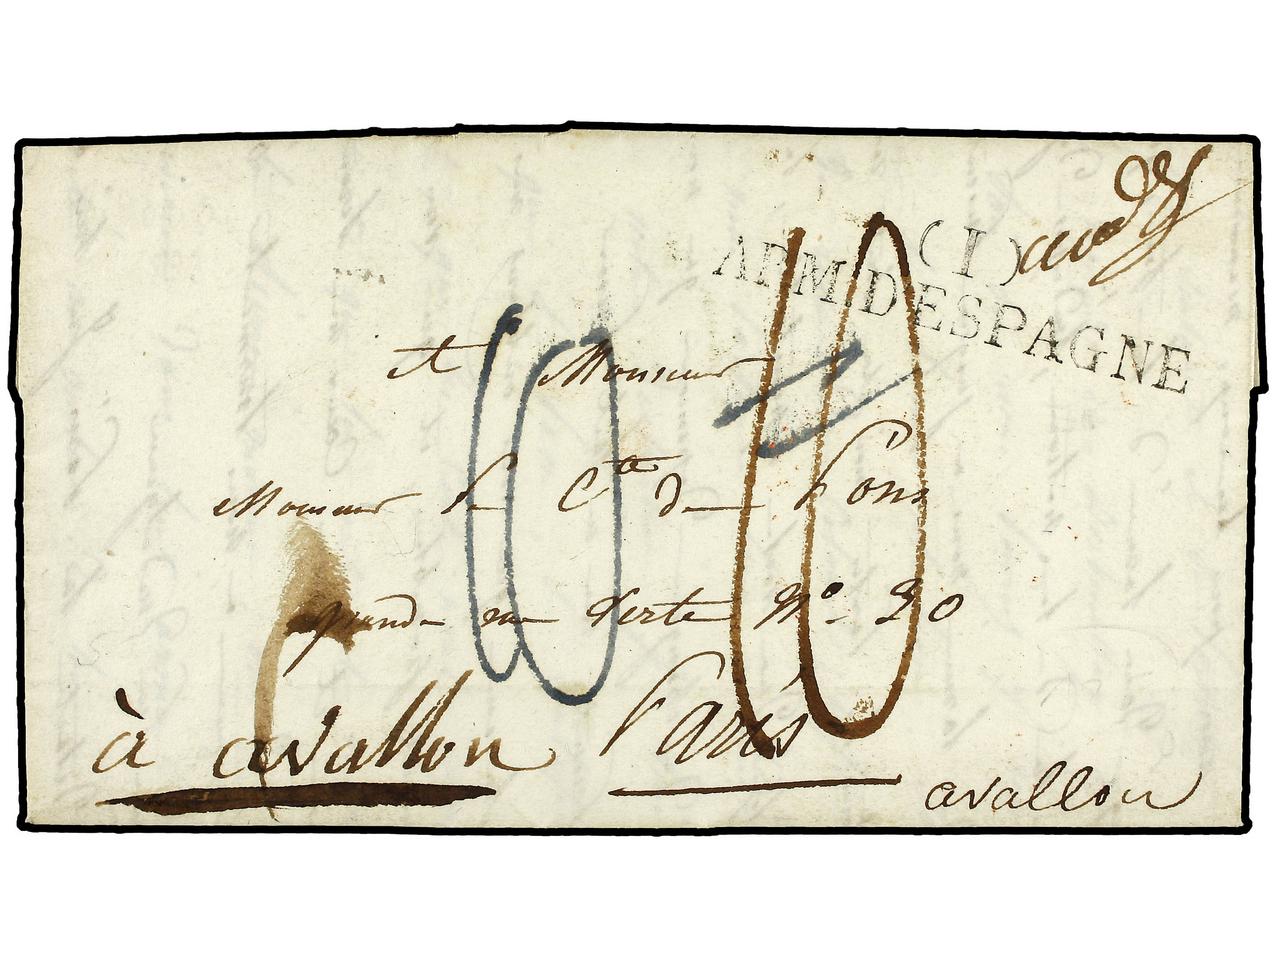 (I)
ARM. D'ESPAGNE
A Monsieur
Monsieur le Cte de Pons
grande rue Verte No 30
à avallon Paris
avallon
10
10